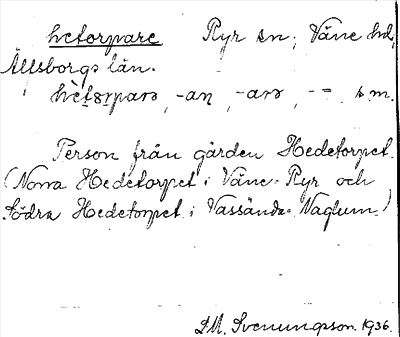 hetorpare Ryr sn; Väne hd,
Älvsborgs län.
hètorparə, -aṇ, -arə, -= s.m.
Person från gården Hedetorpet.
(Norra Hedetorpet i Väne-Ryr och
Södra Hedetorpet i Vassända-Naglum.)
D.M. Svenungsson. 1936.